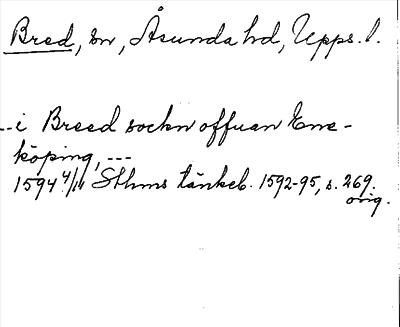 Bred, sn, Åsunda hd, Upps. l.
--i Breed sockn offuan Ene-
köping, ---
1594 4/11 Sthms tänkeb. 1592-95, s. 269.
orig.